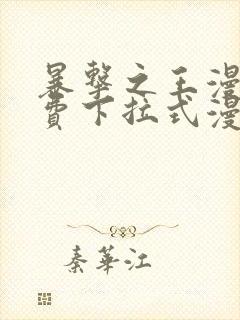 暴擊之王漫
費下拉式漫
秦華江